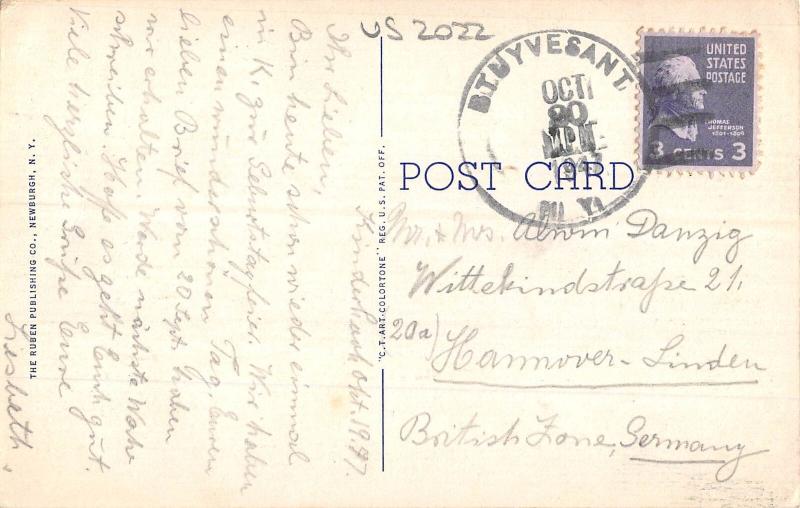 US 2022
STUYVESANT
OCT
20
1947
N. Y.
UNITED
STATES
POSTAGE
THOMAS
JEFFERSON
1801-1809
3 CENTS 3
POST CARD
Kinderhook Okt. 1947.
Ihr Lieben
Bin heute schon wieder einmal
in K. zur Geburtstagfeier. Wir haben
einen wunderschönen Tag. Euren
lieben Brief vom 20 Sept. haben
wir erhalten. Werde nächste Woche
schreiben. Hoffe es geht Euch gut.
Viele herzliche Grüße Eure
Lisbeth.
Mr. & Mrs. Alwin Danzig
Wittekindstraße 21.
20a)
Hannover-Linden
British Zone, Germany
"C.T. ART-COLORTONE" REG. U.S. PAT. OFF.
THE RUBEN PUBLISHING CO., NEWBURGH, N. Y.